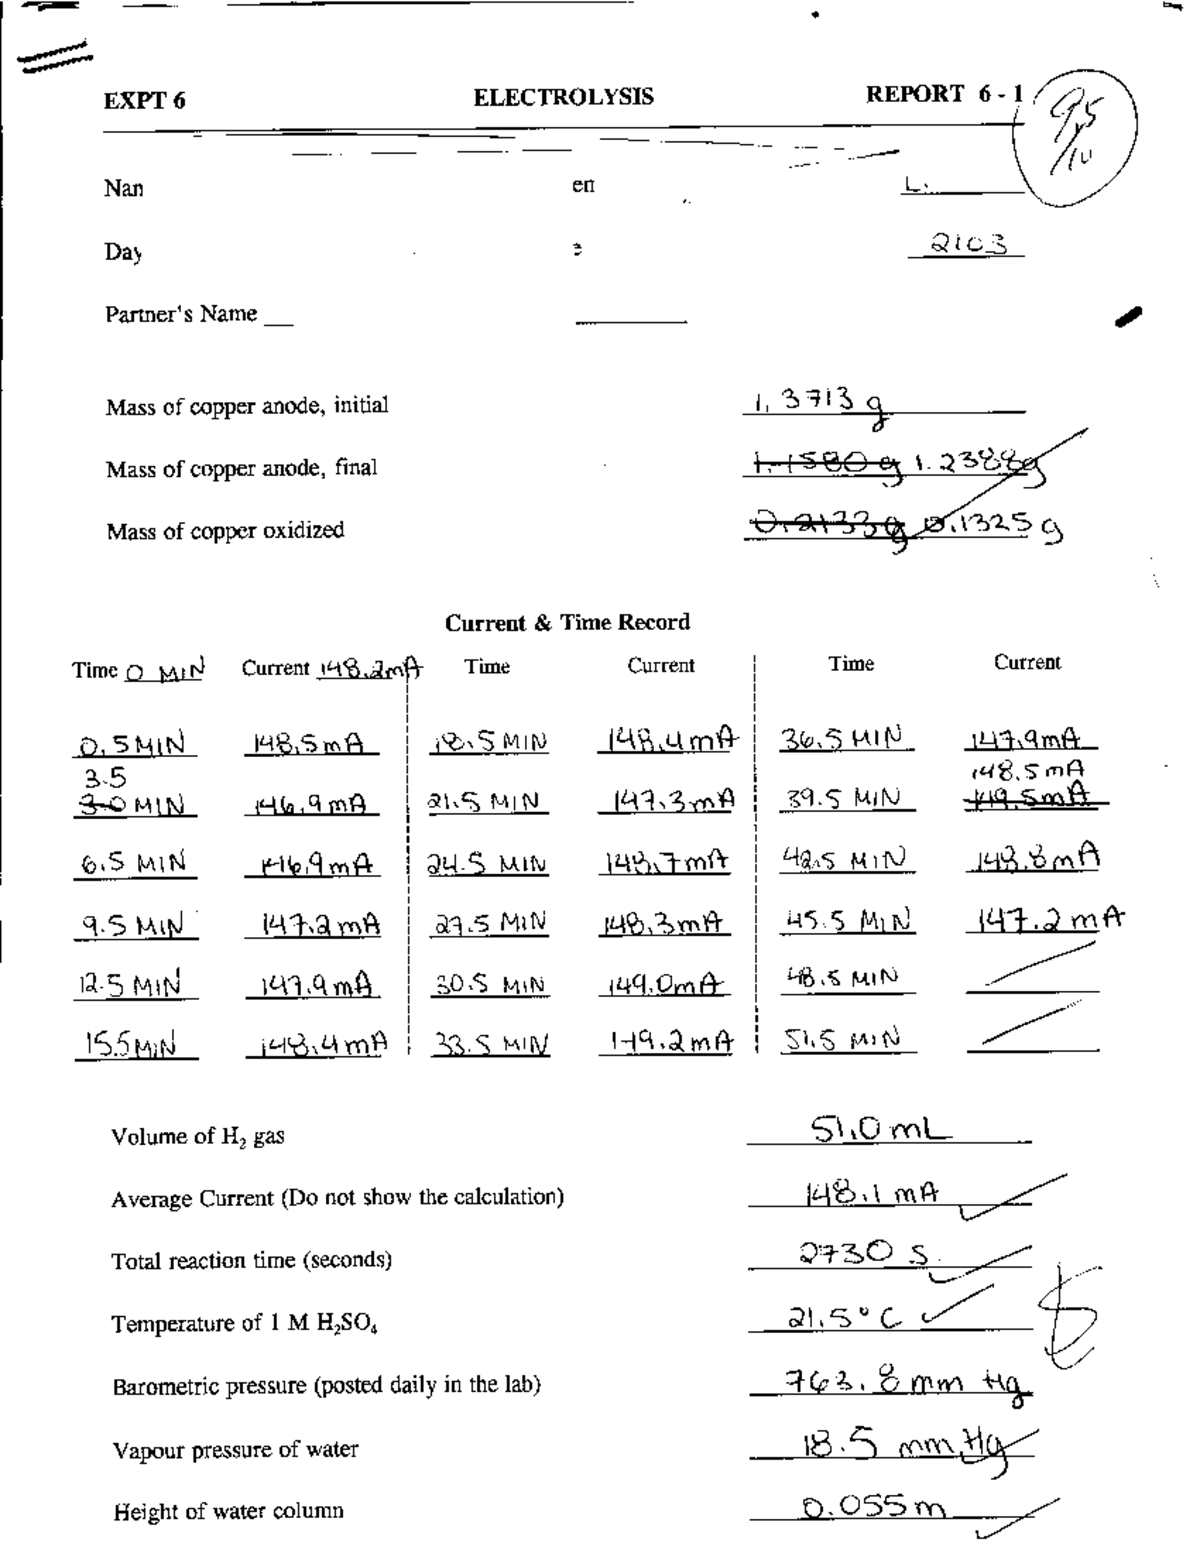 EXPT 6 ELECTROLYSIS REPORT 6 - 1
9.5/10
Nan en L.
Day 2103
Partner's Name
Mass of copper anode, initial 1.3713 g
Mass of copper anode, final 1.1580 g 1.2388g
Mass of copper oxidized 0.2133g 0.1325 g
Current & Time Record
Time 0 MIN Current 148.2mA Time Current Time Current
0.5 MIN 148.5mA 18.5 MIN 148.4mA 36.5 MIN 147.9mA
3.5 148.5mA
3.0 MIN 146.9mA 21.5 MIN 147.3mA 39.5 MIN 149.5mA
6.5 MIN 146.9mA 24.5 MIN 148.7mA 42.5 MIN 148.8mA
9.5 MIN 147.2mA 27.5 MIN 148.3mA 45.5 MIN 147.2mA
12.5 MIN 147.9mA 30.5 MIN 149.0mA 48.5 MIN
15.5 MIN 148.4mA 33.5 MIN 149.2mA 51.5 MIN
Volume of H₂ gas 51.0 mL
Average Current (Do not show the calculation) 148.1 mA
Total reaction time (seconds) 2730 s
Temperature of 1 M H₂SO₄ 21.5°C
Barometric pressure (posted daily in the lab) 763.8 mm Hg
Vapour pressure of water 18.5 mm Hg
Height of water column 0.055m